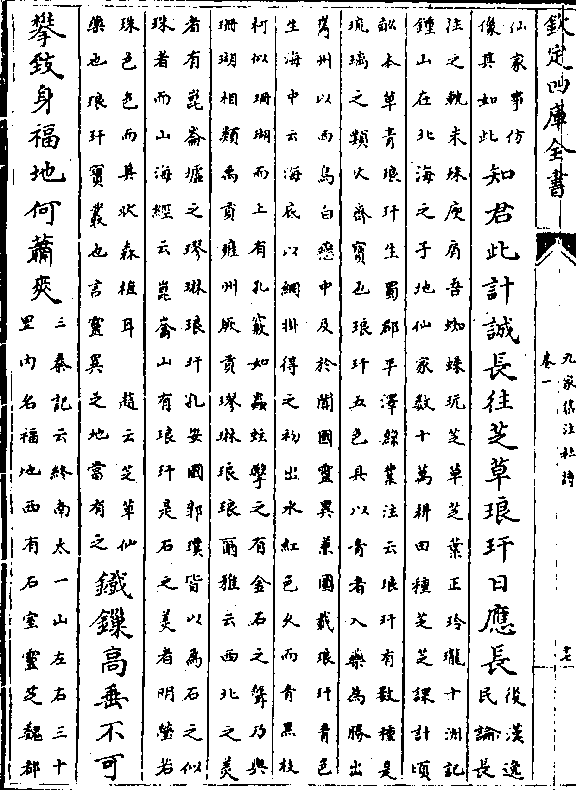 欽定四庫全書
九家集注杜詩
卷一
十七
仙家事仿
像其如此
知君此計誠長往芝草琅玕日應長
後漢逸
民論長
往之軌未殊庾肩吾蜘蛛玩芝草芝葉正玲瓏十洲記
鍾山在北海之子地仙家數十萬耕田種芝芝課計頃
畝本草青琅玕生蜀郡平澤綠葉注云琅玕有數種是
琉璃之類火齊寶也琅玕五色具以青者入藥為勝出
嶲州以西烏白蠻中及於闐國靈異兼圖載琅玕青色
生海中云海底以網掛得之初出水紅色久而青黑枝
柯似珊瑚而上有孔竅如蟲蛀擊之有金石之聲乃與
珊瑚相類禹貢雍州厥貢璆琳琅琅爾雅云西北之美
者有崑崙墟之璆琳琅玕孔安國郭璞皆以為石之似
珠者而山海經云崑崙山有琅玕是石之美者明瑩若
珠色色而其狀森植耳 趙云芝草仙
藥也琅玕寶叢也言靈異之地當有之
鐵鏁高垂不可
攀致身福地何蕭爽
三秦記云終南太一山左右三十
里內名福地西有石室靈芝魏都